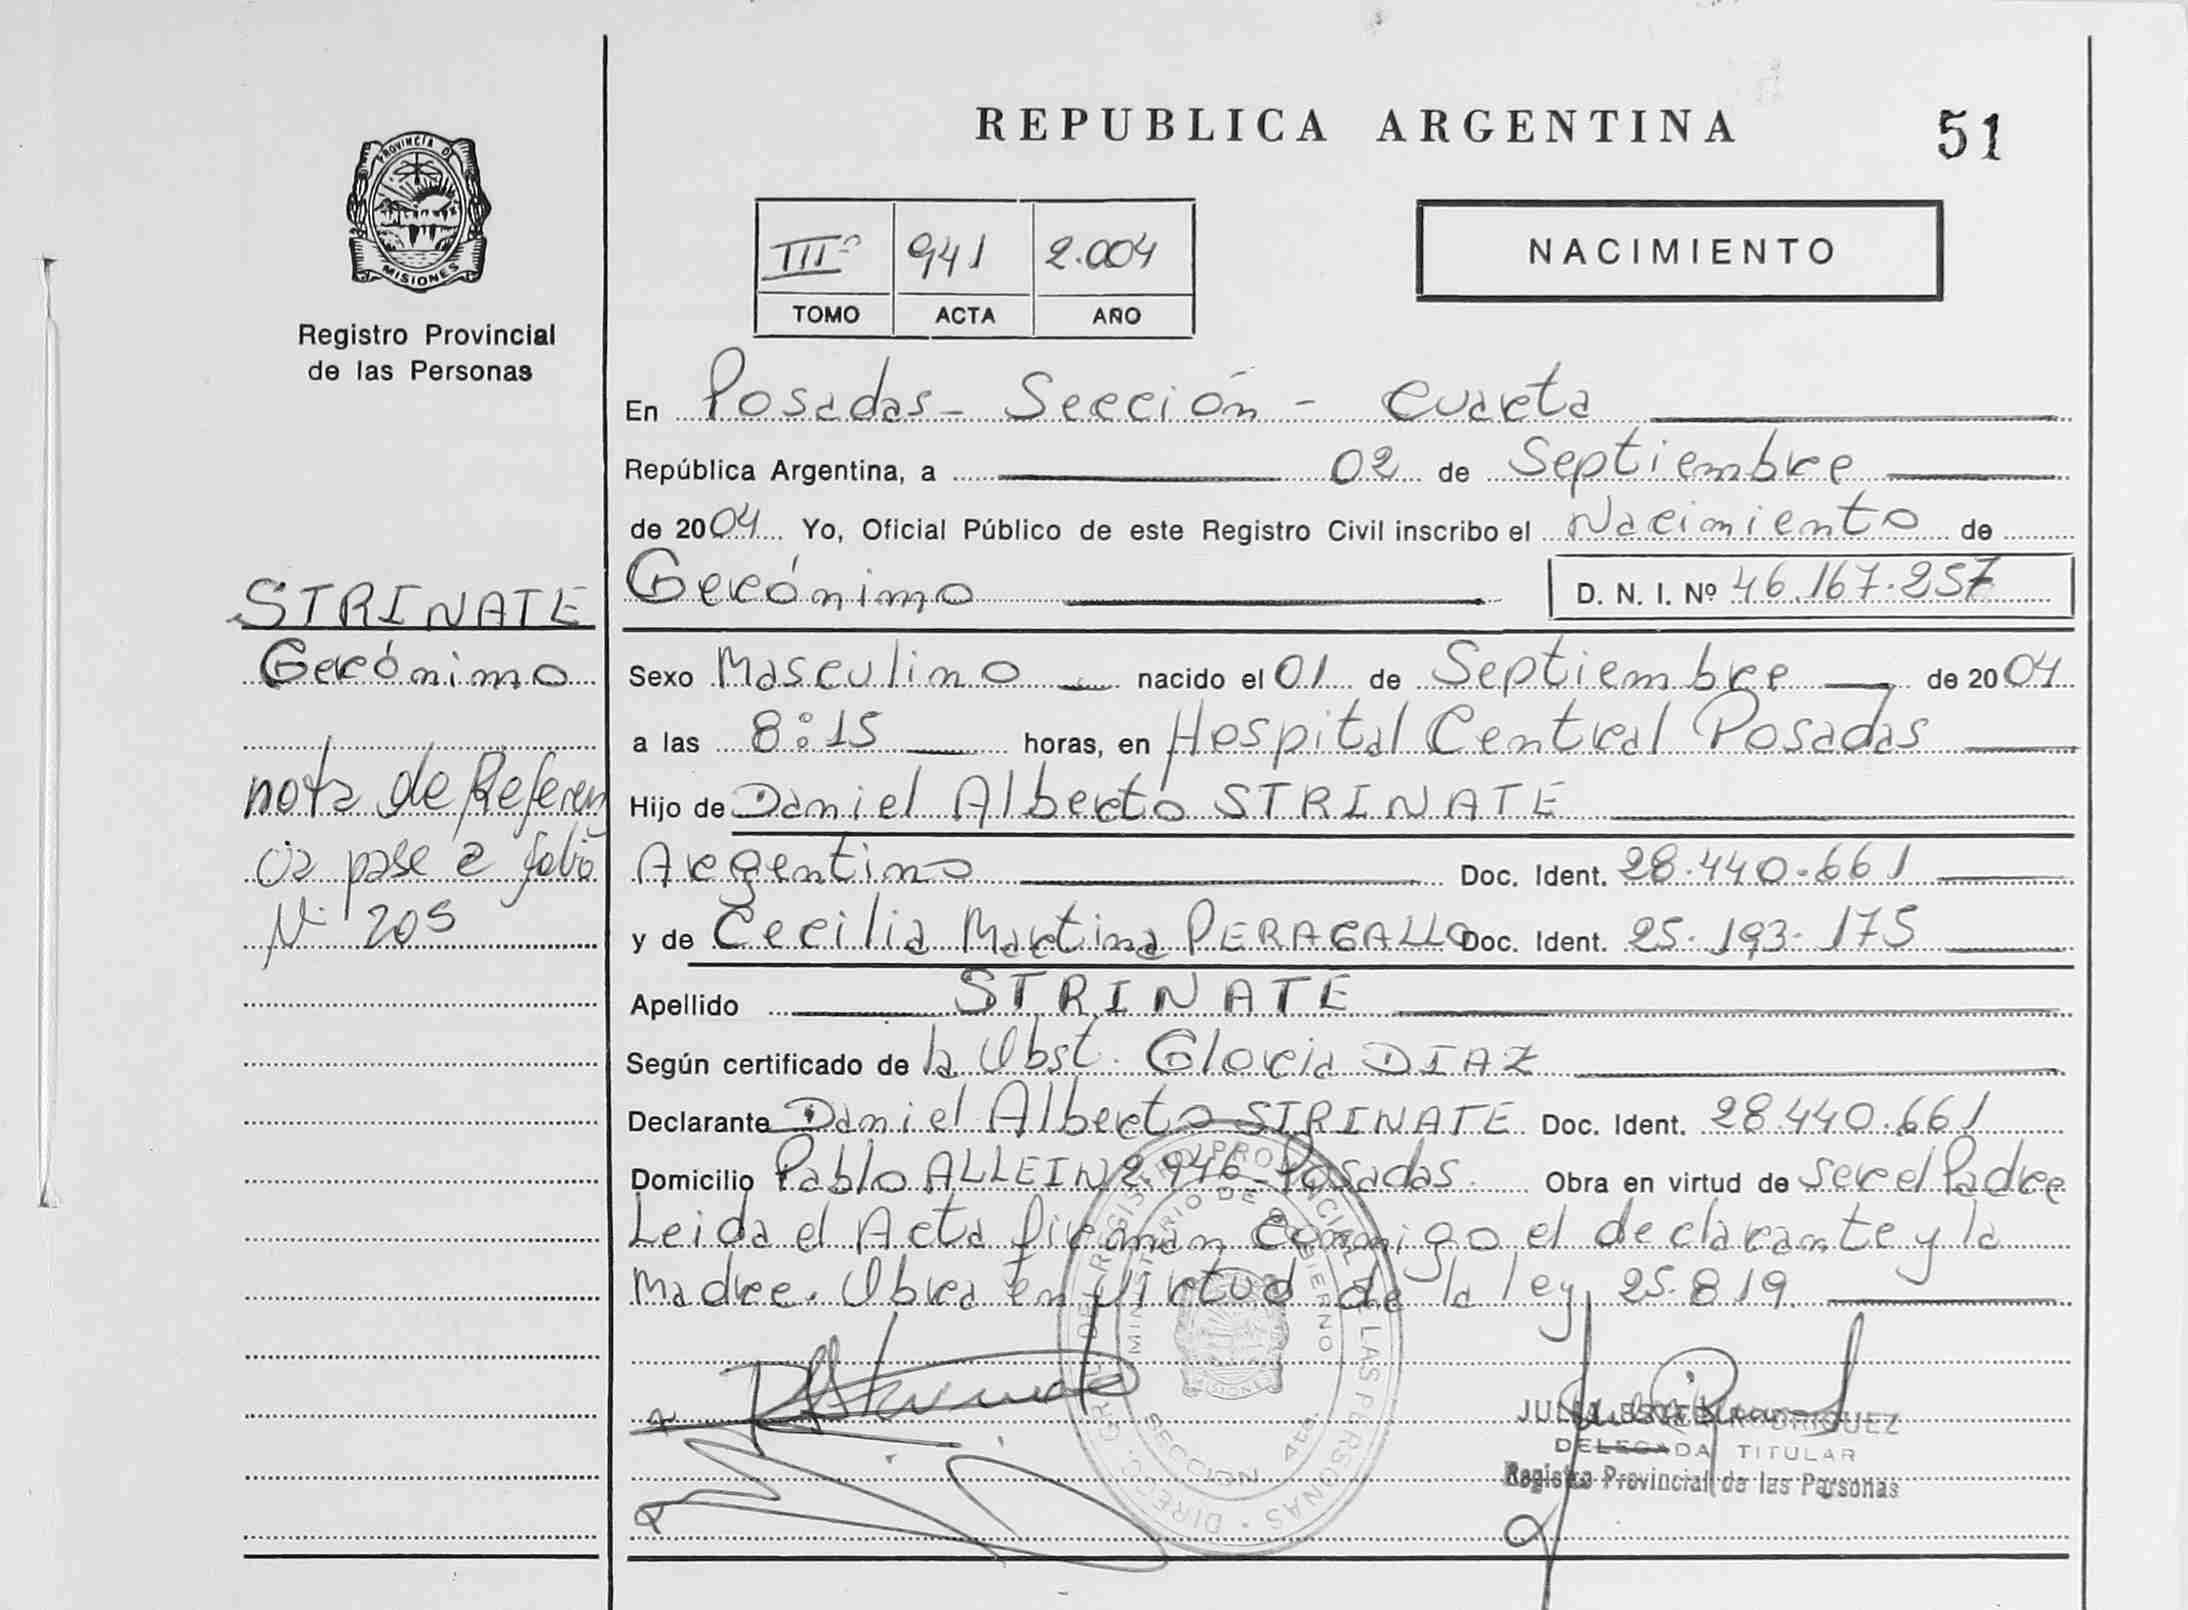 REPUBLICA ARGENTINA
51
PROVINCIA D
MISIONES
Registro Provincial
de las Personas
IIIº 941 2.004
TOMO ACTA AÑO
NACIMIENTO
En Posadas - Sección - Cuarta
República Argentina, a 02 de Septiembre
de 2004 Yo, Oficial Público de este Registro Civil inscribo el Nacimiento de
Gerónimo D. N. I. Nº 46.167.257
STRINATE
Gerónimo
Sexo Masculino nacido el 01 de Septiembre de 2004
a las 8:15 horas, en Hospital Central Posadas
nota de Referen
cia pase a folio
Nº 205
Hijo de Daniel Alberto STRINATE
Argentino Doc. Ident. 28.440.661
y de Cecilia Martina PERAGALLO Doc. Ident. 25.193.175
Apellido STRINATE
Según certificado de la Obst. Gloria DIAZ
Declarante Daniel Alberto STRINATE Doc. Ident. 28.440.661
Domicilio Pablo ALLEIN 2.946 - Posadas. Obra en virtud de ser el Padre
Leida el Acta firman conmigo el declarante y la
Madre. Obra en virtud de la ley 25.819.
DIREC. GRAL. DEL REGISTRO PROVINCIAL DE LAS PERSONAS
MINISTERIO DE GOBIERNO
MISIONES
SECCION 4ta.
JULIA ESTER RODRIGUEZ
DELEGADA TITULAR
Registro Provincial de las Personas